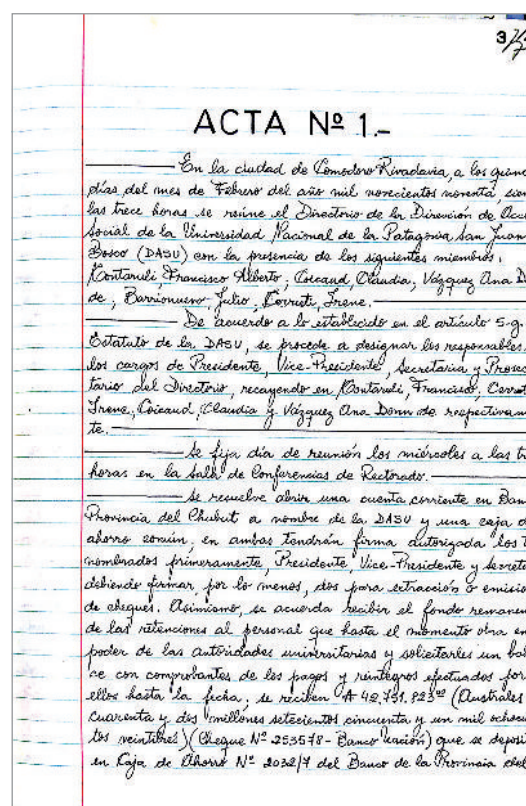 3/
ACTA Nº 1.-
En la ciudad de Comodoro Rivadavia, a los quince
días del mes de Febrero del año mil novecientos noventa, sien
las trece horas se reúne el Directorio de la Dirección de Acc
Social de la Universidad Nacional de la Patagonia San Juan
Bosco (DASU) con la presencia de los siguientes miembros:
Francisco Alberto; Coicaud, Claudia; Vázquez Ana D
de; Barrionuevo, Julio; Irene.
De acuerdo a lo establecido en el artículo 5-g.
Estatuto de la DASU, se procede a designar los responsables
los cargos de Presidente, Vice-Presidente, Secretaria y Prosec
tario del Directorio, recayendo en Francisco;
Irene, Coicaud, Claudia y Vázquez Ana de respectivam
te.
Se fija día de reunión los miércoles a las tr
horas en la Sala de Conferencias de Rectorado.
Se resuelve abrir una cuenta corriente en Ban
Provincia del Chubut a nombre de la DASU y una caja d
ahorro común, en ambas tendrán firma autorizada los t
nombrados primeramente, Presidente, Vice-Presidente y Secret
debiendo firmar, por lo menos, dos para extracción o emisio
de cheques. Asimismo, se acuerda recibir el fondo remanen
de las retenciones al personal que hasta el momento obra en
poder de las autoridades universitarias y solicitarles un bal
ce con comprobantes de los pagos y reintegros efectuados por
ellos hasta la fecha; se reciben A 42.751.823 (Australes
cuarenta y dos millones setecientos cincuenta y un mil ochoc
tos veintitrés) (Cheque Nº 253578 - Banco Nación) que se deposi
en Caja de Ahorro Nº 2032/7 del Banco de la Provincia del